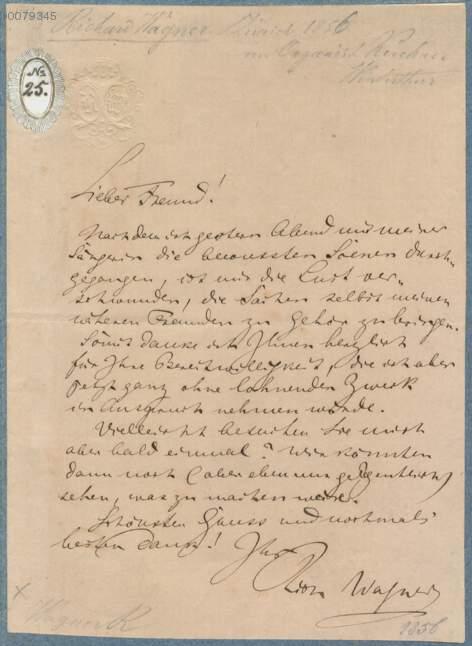 00079345
Richard Wagner. Zürich 1856
an Organist Kirchner
Winterthur
No
25.
Lieber Freund!
Nachdem ich gestern Abend mit meiner
Sängerin die bewussten Scenen durch-
gegangen, ist mir die Lust ver-
schwunden, die Sachen selbst meinen
näheren Freunden zu Gehör zu bringen.
Somit danke ich Ihnen herzlich
für Ihre Bereitwilligkeit, die ich aber
jetzt ganz ohne lohnenden Zweck
in Anspruch nehmen würde.
Vielleicht besuchen Sie mich
aber bald einmal? Wir könnten
dann noch (aber eben nur gelegentlich)
sehen, was zu machen wäre.
Schönsten Gruss und nochmals
besten Dank! Ihr
Rich Wagner
x
Wagner R
1856